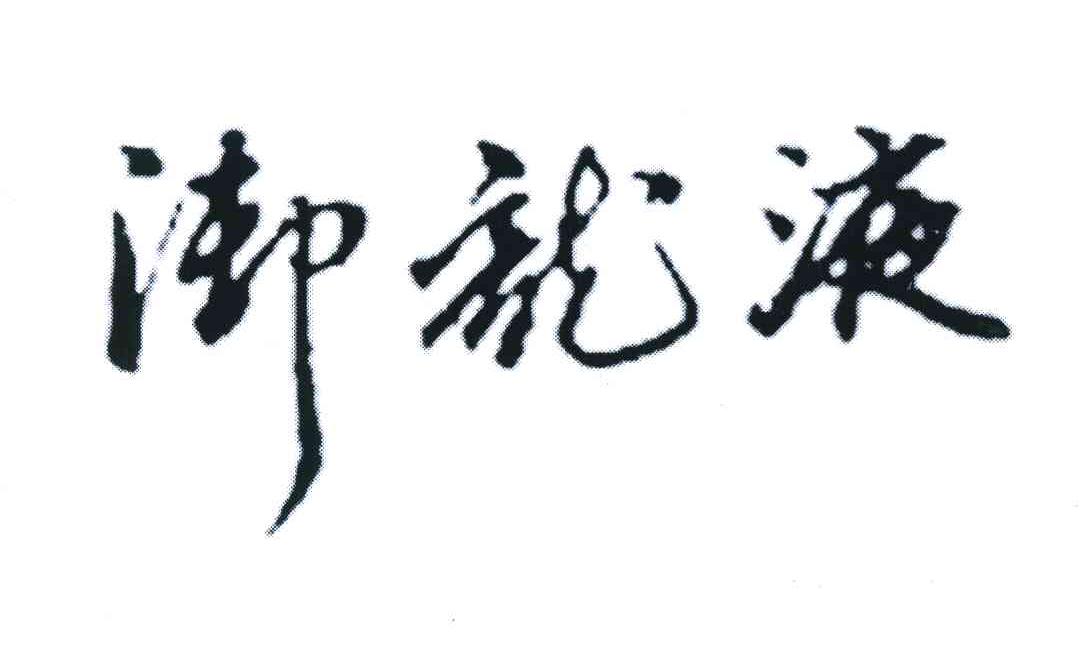 御龍液